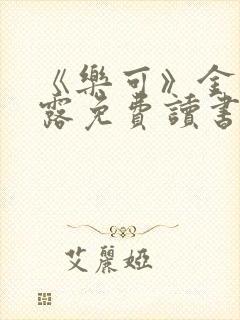 《樂可》金
露免費讀書
艾麗婭